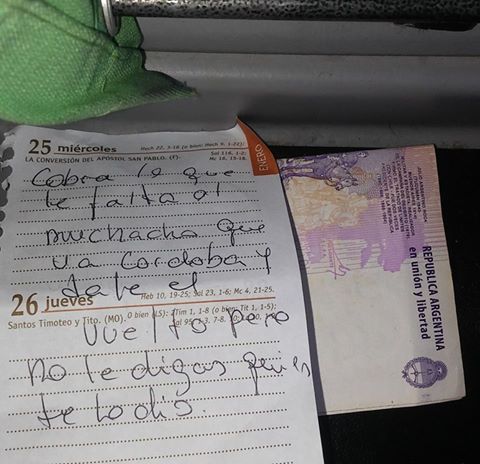 25 miércoles
Hech 22, 3-16 (o bien: Hech 9, 1-22);
Sal 116, 1-2;
Mc 16, 15-18.
LA CONVERSIÓN DEL APÓSTOL SAN PABLO. (F).
ENERO
Cobra lo que
te falta al
muchacho que
va Cordoba y
dale el
26 jueves
Heb 10, 19-25; Sal 23, 1-6; Mc 4, 21-25.
Santos Timoteo y Tito. (MO). O bien (LS): 2Tim 1, 1-8 (o bien: Tit 1, 1-5);
Sal 95
vuelto pero
no le digas quien
te lo dio.
REPUBLICA ARGENTINA
en unión y libertad